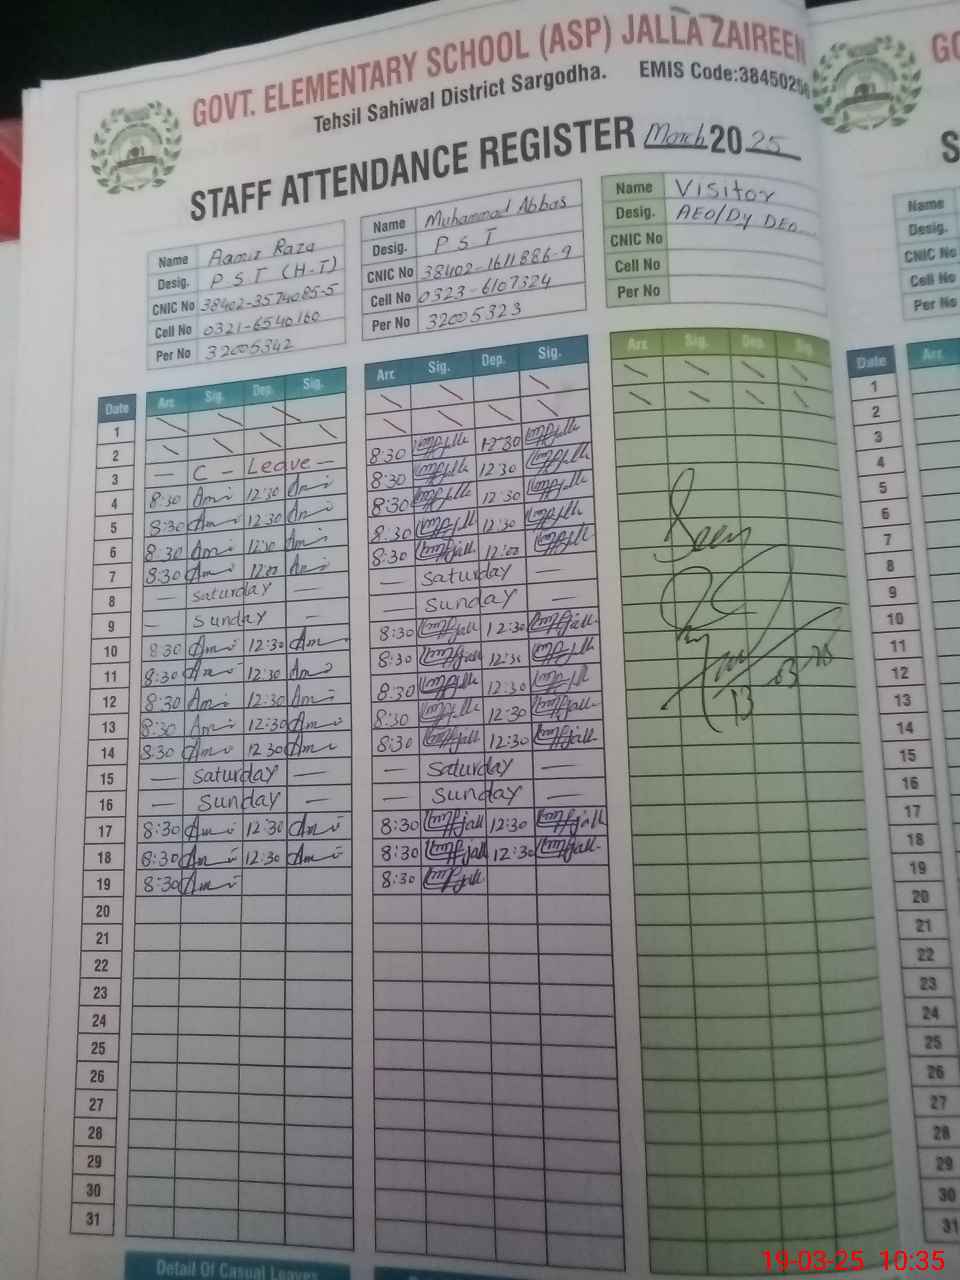 GOVT. ELEMENTARY SCHOOL (ASP) JALLA ZAIREEN
Tehsil Sahiwal District Sargodha. EMIS Code:3845025
STAFF ATTENDANCE REGISTER March 2025
Name Aamir Raza
Desig. P.S.T (H-T)
CNIC No 38402-3574085-5
Cell No 0321-6540160
Per No 32005342
Name Muhammad Abbas
Desig. P S T
CNIC No 38402-1611886-9
Cell No 0323-6107324
Per No 32005323
Name Visitor
Desig. AEO/Dy DEO
CNIC No
Cell No
Per No
Date Arr. Sig. Dep. Sig. Arr. Sig. Dep. Sig. Arr. Sig. Dep. Sig.
1
2
3 C - Leave 8:30 12:30
4 8:30 12:30 8:30 12:30
5 8:30 12:30 8:30 12:30
6 8:30 12:30 8:30 12:30
7 8:30 12:00 8:30 12:00
8 Saturday Saturday
9 Sunday Sunday
10 8:30 12:30 8:30 12:30
11 8:30 12:30 8:30 12:30
12 8:30 12:30 8:30 12:30
13 8:30 12:30 8:30 12:30
14 8:30 12:30 8:30 12:30
15 Saturday Saturday
16 Sunday Sunday
17 8:30 12:30 8:30 12:30
18 8:30 12:30 8:30 12:30
19 8:30 8:30
20
21
22
23
24
25
26
27
28
29
30
31
Seen
Detail Of Casual Leaves
Name
Desig.
CNIC No
Cell No
Per No
Date Arr.
1
2
3
4
5
6
7
8
9
10
11
12
13
14
15
16
17
18
19
20
21
22
23
24
25
26
27
28
29
30
31
19-03-25 10:35